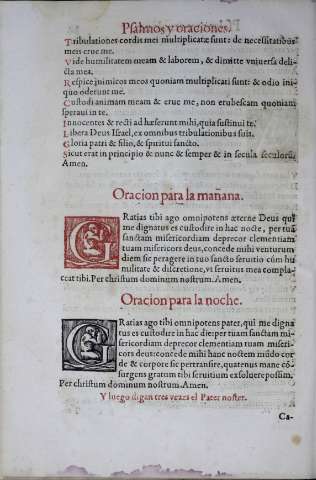 Psalmos y oraciones.
Tribulationes cordis mei multiplicatæ sunt: de necessitatibus
meis erue me.
Vide humilitatem meam & laborem, & dimitte vniuersa deli-
cta mea.
Respice inimicos meos quoniam multiplicati sunt: & odio ini-
quo oderunt me.
Custodi animam meam & erue me, non erubescam quoniam
speraui in te.
Innocentes & recti adhæserunt mihi, quia sustinui te.
Libera Deus Israel, ex omnibus tribulationibus suis.
Gloria patri & filio, & spiritui sancto.
Sicut erat in principio & nunc & semper & in secula seculorũ,
Amen.
Oracion para la mañana.
GRatias tibi ago omnipotens æterne Deus qui
me dignatus es custodire in hac nocte, per tuã
sanctam misericordiam deprecor clementiam
tuam misericors deus, concede mihi venturum
diem sic peragere in tuo sancto seruitio cùm hu
militate & discretione, vt seruitus mea compla-
ceat tibi. Per christum dominum nostrum. Amen.
Oracion para la noche.
GRatias ago tibi omnipotens pater, qui me digna
tus es custodire in hac die: per tuam sanctam mi-
sericordiam deprecor clementiam tuam miseri-
cors deus: concede mihi hanc noctem mũdo cor
de & corpore sic pertransire, quatenus mane cõ-
surgens gratum tibi seruitium exsoluere possim.
Per christum dominum nostrum. Amen.
Y luego digan tres vezes el Pater noster.
Ca-